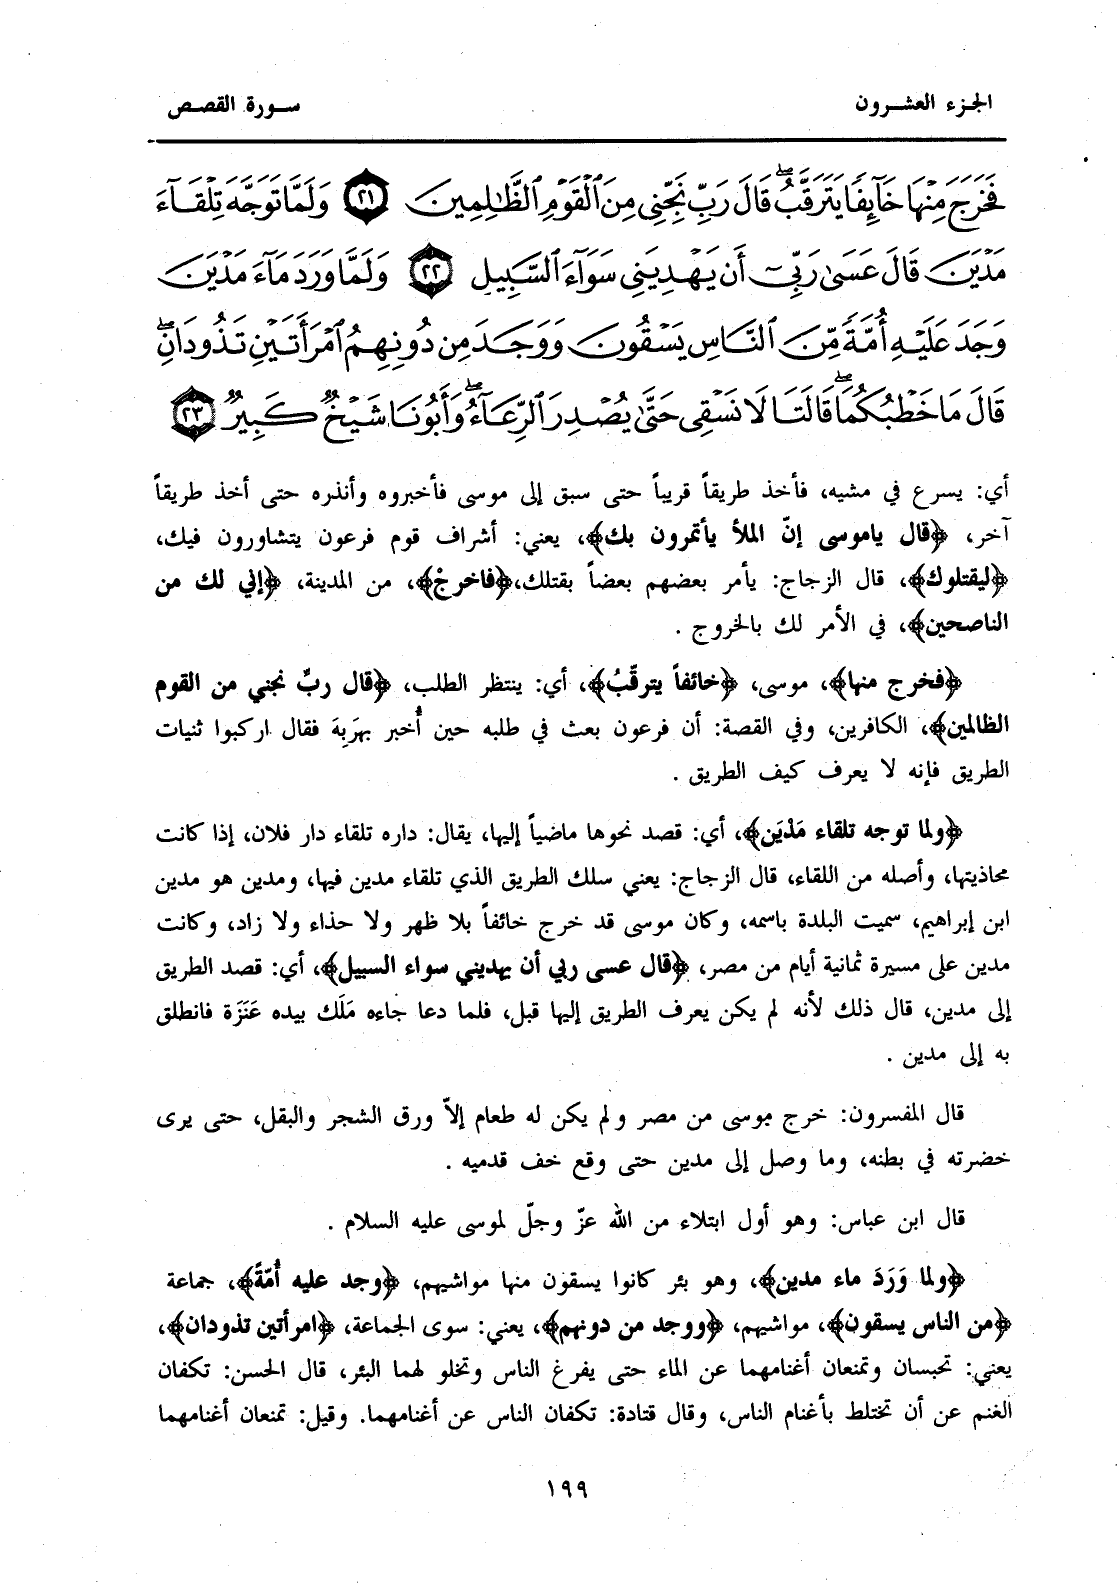 الجزء العشرون
سورة القصص
فَخَرَجَ مِنْهَا خَآئِفًا يَتَرَقَّبُ ۖ قَالَ رَبِّ نَجِّنِى مِنَ ٱلْقَوْمِ ٱلظَّـٰلِمِينَ ٢١ وَلَمَّا تَوَجَّهَ تِلْقَآءَ
مَدْيَنَ قَالَ عَسَىٰ رَبِّىٓ أَن يَهْدِيَنِى سَوَآءَ ٱلسَّبِيلِ ٢٢ وَلَمَّا وَرَدَ مَآءَ مَدْيَنَ
وَجَدَ عَلَيْهِ أُمَّةً مِّنَ ٱلنَّاسِ يَسْقُونَ وَوَجَدَ مِن دُونِهِمُ ٱمْرَأَتَيْنِ تَذُودَانِ ۖ
قَالَ مَا خَطْبُكُمَا ۖ قَالَتَا لَا نَسْقِى حَتَّىٰ يُصْدِرَ ٱلرِّعَآءُ ۖ وَأَبُونَا شَيْخٌ كَبِيرٌ ٢٣
أي: يسرع في مشيه، فأخذ طريقاً قريباً حتى سبق إلى موسى فأخبروه وأنذره حتى أخذ طريقاً
آخر، ﴿قال ياموسى إنّ الملأ يأتمرون بك﴾، يعني: أشراف قوم فرعون يتشاورون فيك،
﴿ليقتلوك﴾، قال الزجاج: يأمر بعضهم بعضاً بقتلك،﴿فاخرجْ﴾، من المدينة، ﴿إني لك من
الناصحين﴾، في الأمر لك بالخروج .
﴿فخرج منها﴾، موسى، ﴿خائفاً يترقّبُ﴾، أي: ينتظر الطلب، ﴿قال ربِّ نجني من القوم
الظالمين﴾، الكافرين، وفي القصة: أن فرعون بعث في طلبه حين أُخبر بهَرَبِهَ فقال اركبوا ثنيات
الطريق فإنه لا يعرف كيف الطريق .
﴿ولما توجه تلقاء مَدْيَن﴾، أي: قصد نحوها ماضياً إليها، يقال: داره تلقاء دار فلان، إذا كانت
محاذيتها، وأصله من اللقاء، قال الزجاج: يعني سلك الطريق الذي تلقاء مدين فيها، ومدين هو مدين
ابن إبراهيم، سميت البلدة باسمه، وكان موسى قد خرج خائفاً بلا ظهر ولا حذاء ولا زاد، وكانت
مدين على مسيرة ثمانية أيام من مصر، ﴿قال عسى ربي أن يهديني سواء السبيل﴾، أي: قصد الطريق
إلى مدين، قال ذلك لأنه لم يكن يعرف الطريق إليها قبل، فلما دعا جاءه مَلَك بيده عَنَزَة فانطلق
به إلى مدين .
قال المفسرون: خرج موسى من مصر ولم يكن له طعام إلاّ ورق الشجر والبقل، حتى يرى
خضرته في بطنه، وما وصل إلى مدين حتى وقع خف قدميه .
قال ابن عباس: وهو أول ابتلاء من الله عزّ وجلّ لموسى عليه السلام .
﴿ولما وَرَدَ ماء مدين﴾، وهو بئر كانوا يسقون منها مواشيهم، ﴿وجد عليه أُمّةً﴾، جماعة
﴿من الناس يسقون﴾، مواشيهم، ﴿ووجد من دونهم﴾، يعني: سوى الجماعة، ﴿امرأتين تذودان﴾،
يعني: تحبسان وتمنعان أغنامهما عن الماء حتى يفرغ الناس وتخلو لهما البئر، قال الحسن: تكفان
الغنم عن أن تختلط بأغنام الناس، وقال قتادة: تكفان الناس عن أغنامهما. وقيل: تمنعان أغنامهما
١٩٩